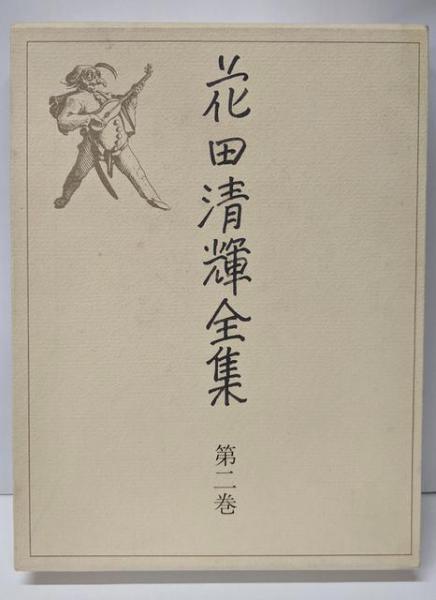 花田清輝全集
第二巻